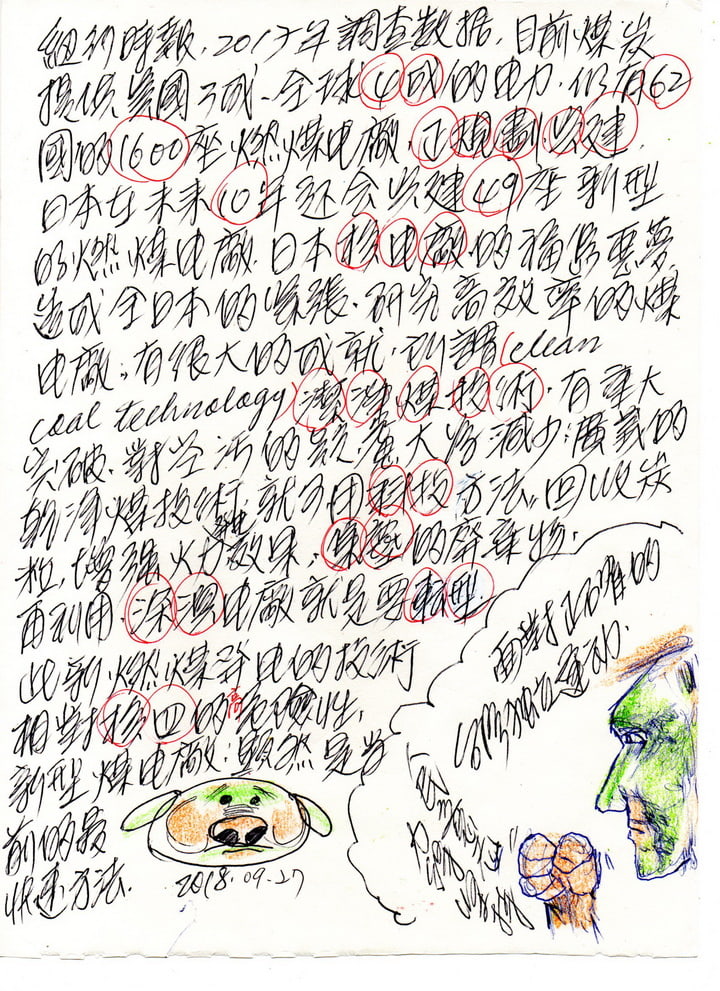 紐約時報，2017年調查数据，目前煤炭
提供美國3成、全球4成的电力，仍有62
國的1600座燃煤电廠，正規劃、兴建，
日本在未來10年还会兴建49座新型
的燃煤电廠，日本核电廠的福島惡夢
造成全日本的緊張，研究高效率的煤
电廠，有很大的成就，所謂(clean
coal technology)潔淨煤技術，有重大
突破，對生活的 大為減少；廣義的
乾淨煤技術，就可用科技方法，回收炭
粒，增强火力發电效果， 的廢棄物，
再利用，深澳电廠就是要転型，
此新燃煤発电的技術
相對核四的高危險性，
新型煤电廠，毅然是当
前的最
快速方法。
2018.09.27
面對正確的